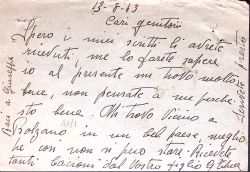 13-8-43
Cari genitori
Spero i miei scritti li avrete
ricevuti, me lo farete sapere
io al presente mi trovo molto
bene, non pensate a me perche
sto bene. Mi trovo vicino a
Bolzano in un bel paese, meglio
che con non si puo stare. Ricevete
tanti bacioni dal Vostro figlio
Baci a Giuseppe